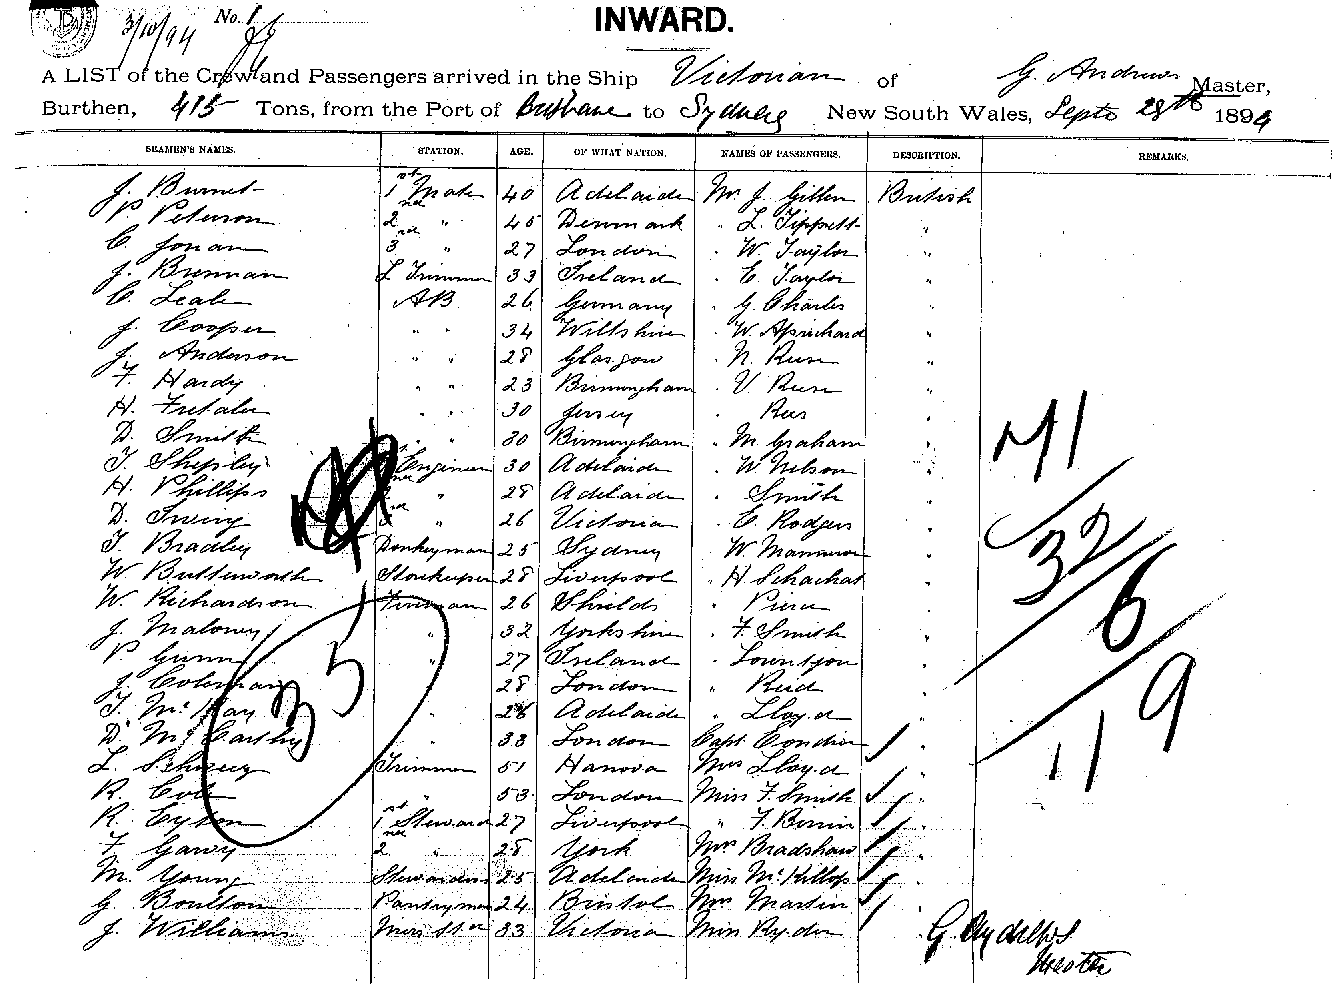 3/10/94 No. 1
INWARD.
A LIST of the Crew and Passengers arrived in the Ship Victorian of G. Andrews Master,
Burthen, 415 Tons, from the Port of Brisbane to Sydney New South Wales, Septr 28th 1894
SEAMEN'S NAMES. STATION. AGE. OF WHAT NATION. NAMES OF PASSENGERS. DESCRIPTION. REMARKS.
J. Burnet 1st Mate 40 Adelaide Mr J. Gillen British
P. Peterson 2nd " 45 Denmark " L. Tippett "
C. Jonan 3rd " 27 London " W. Taylor "
J. Brennan L Trimmer 33 Ireland " E. Taylor "
C. Leale AB 26 Germany " G. Charles "
J. Cooper " " 34 Wiltshire " W. Aprichard "
J. Anderson " " 28 Glasgow " N. "
F. Hardy " " 23 Birmingham " V. "
H. " " 30 Jersey " Rees "
D. Smith " " 30 Birmingham " M. Graham "
T. Shepley Engineer 30 Adelaide " W Nelson "
H. Phillips " 28 Adelaide " Smith "
D. Irving 3rd " 26 Victoria " E. Rodgers "
T. Bradley Donkeyman 25 Sydney " W. "
W. Butterworth Storekeeper 28 Liverpool " H "
W. Richardson Fireman 26 Shields " "
J. Maloney " 32 Yorkshire " F. Smith "
P. Gunn " 27 Ireland " "
J. Coleman " 28 London " Reid "
T. McKay " 26 Adelaide " Lloyd "
D. McCarthy " 33 London Capt. Condron "
L. Trimmer 51 Hanova Mrs Lloyd "
R. Cole " 53 London Miss F. Smith "
R. Eyton 1st Steward 27 Liverpool " F. "
F. Garvy 2nd " 28 York Mrs Bradshaw "
M. Young Stewardess 25 Adelaide Miss McKillop "
G. Boulton Pantryman 24 Bristol Mrs Martin "
J. Williams 33 Victoria Miss Ryder
35
71
32
6
9
11
Master